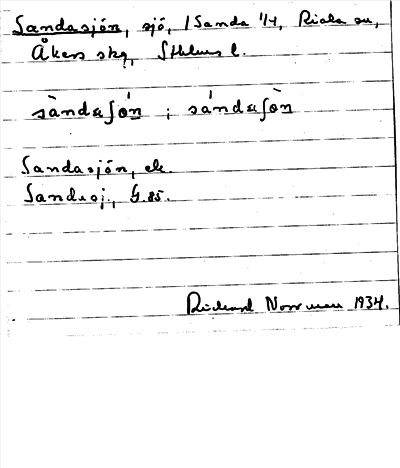 Sandasjön, sjö, / Sanda 1/4, Riala sn,
Åkers skg, Sthlms l.
sàndaʃón ; sándaʃòn
Sandasjön, ek.
Sandasj., G.85.
Rickard Norrman 1934.